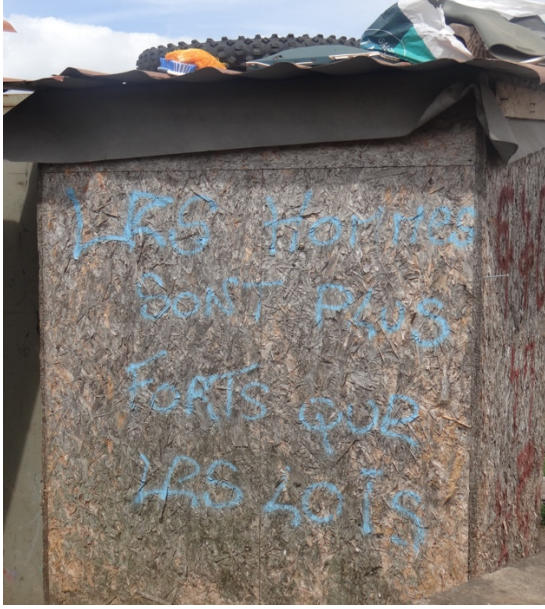 LES Hommes
SONT PLUS
FORTS QUE
LES LOIS